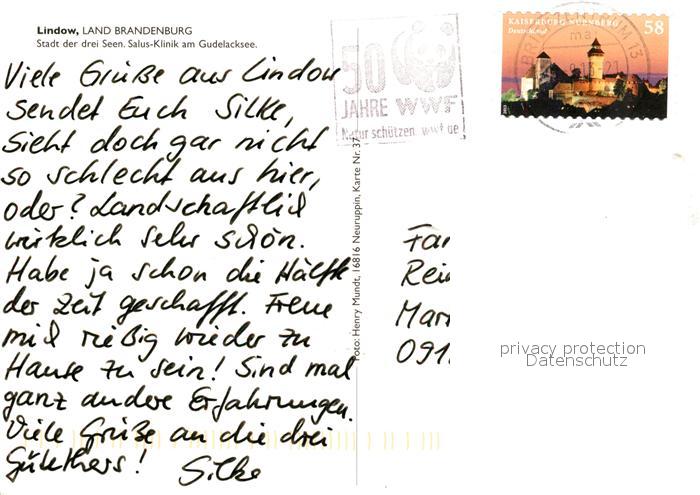 Lindow, LAND BRANDENBURG
Stadt der drei Seen. Salus-Klinik am Gudelacksee.
Viele Grüße aus Lindow
sendet Euch Silke,
Sieht doch gar nicht
so schlecht aus hier,
oder? Landschaftlich
wirklich sehr schön.
Habe ja schon die Hälfte
der Zeit geschafft. Freue
mich rießig wieder zu
Hause zu sein! Sind mal
ganz andere Erfahrungen.
Viele Grüße an die drei
Günthers!
Silke
Foto: Henry Mundt, 16816 Neuruppin, Karte Nr. 37
50
JAHRE WWF
Natur schützen. wwf.de
KAISERBURG NÜRNBERG 58
Deutschland
Fa
Rei
Mar
091
privacy protection
Datenschutz